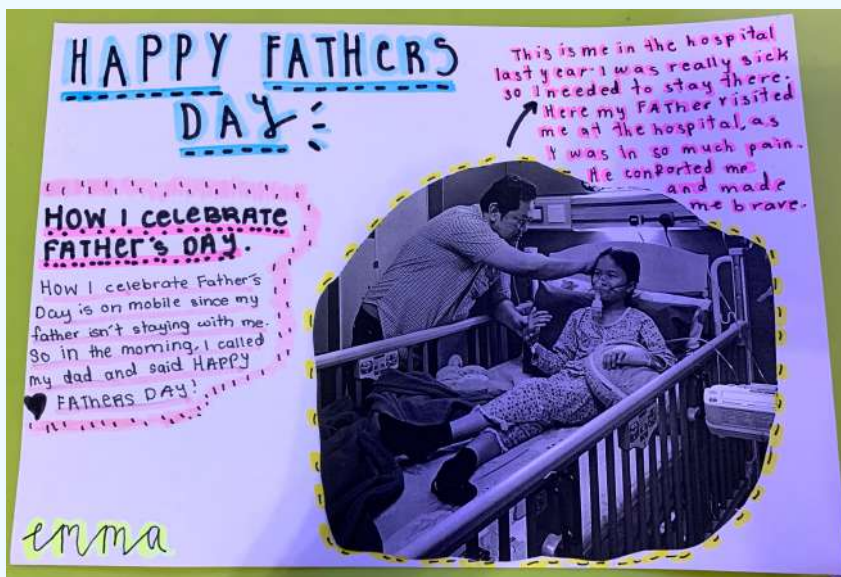 HAPPY FATHERS
DAY
This is me in the hospital
last year. I was really sick
so I needed to stay there.
Here my FATHer visited
me at the hospital, as
I was in so much pain.
He conforted me
and made
me brave.
HOW I CELEBRATE
FATHER'S DAY.
HOW I celebrate Father's
Day is on mobile since my
father isn't staying with me.
So in the morning, I called
my dad and said HAPPY
FATHERS DAY!
emma